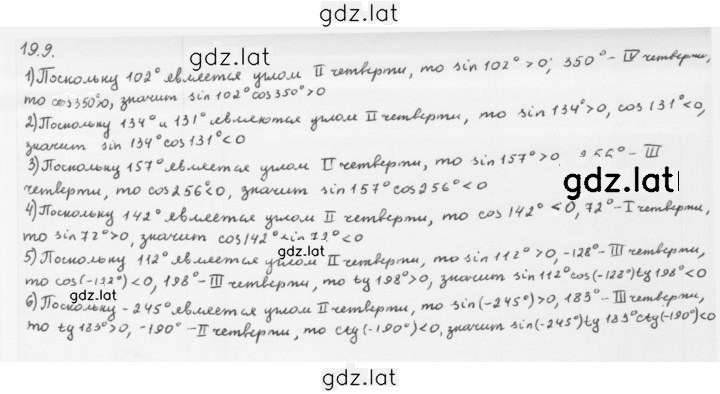 gdz.lat
19.9.
gdz.lat
1) Поскольку 102° является углом II четверти, то sin 102° > 0; 350° - IV четверти,
то cos 350° > 0, значит sin 102° cos 350° > 0
2) Поскольку 134° и 131° являются углом II четверти, то sin 134° > 0, cos 131° < 0,
значит sin 134° cos 131° < 0
3) Поскольку 157° является углом II четверти, то sin 157° > 0, 256° - III
четверти, то cos 256° < 0, значит sin 157° cos 256° < 0
gdz.lat
4) Поскольку 142° является углом II четверти, то cos 142° < 0, 72° - I четверти,
то sin 72° > 0, значит cos 142° sin 72° < 0
gdz.lat
5) Поскольку 112° является углом II четверти, то sin 112° > 0, -128° - III четверти,
то cos(-128°) < 0, 198° - III четверти, то tg 198° > 0, значит sin 112° cos(-128°) tg 198° < 0
gdz.lat
6) Поскольку -245° является углом II четверти, то sin(-245°) > 0, 183° - III четверти,
то tg 183° > 0, -190° - II четверти, то ctg(-190°) < 0, значит sin(-245°) tg 183° ctg(-190°) < 0
gdz.lat